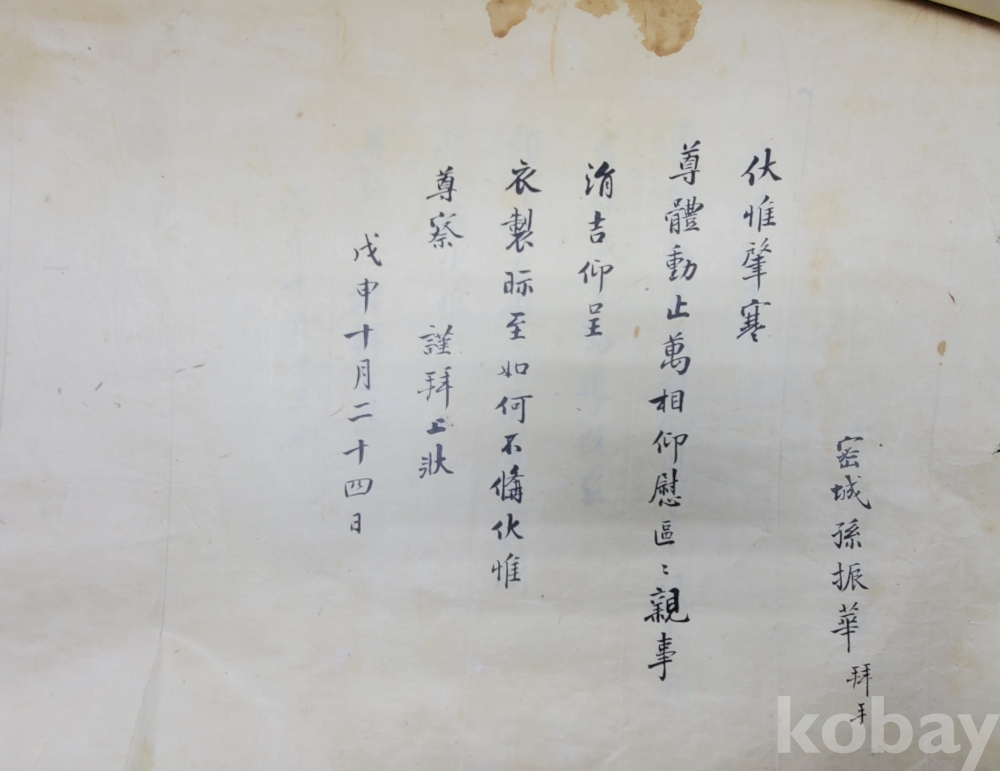 密城孫振華 拜手
伏惟肇寒
尊體動止萬相仰慰區〻親事
涓吉仰呈
衣製眎至如何不備伏惟
尊察 謹拜上狀
戊申十月二十四日
kobay